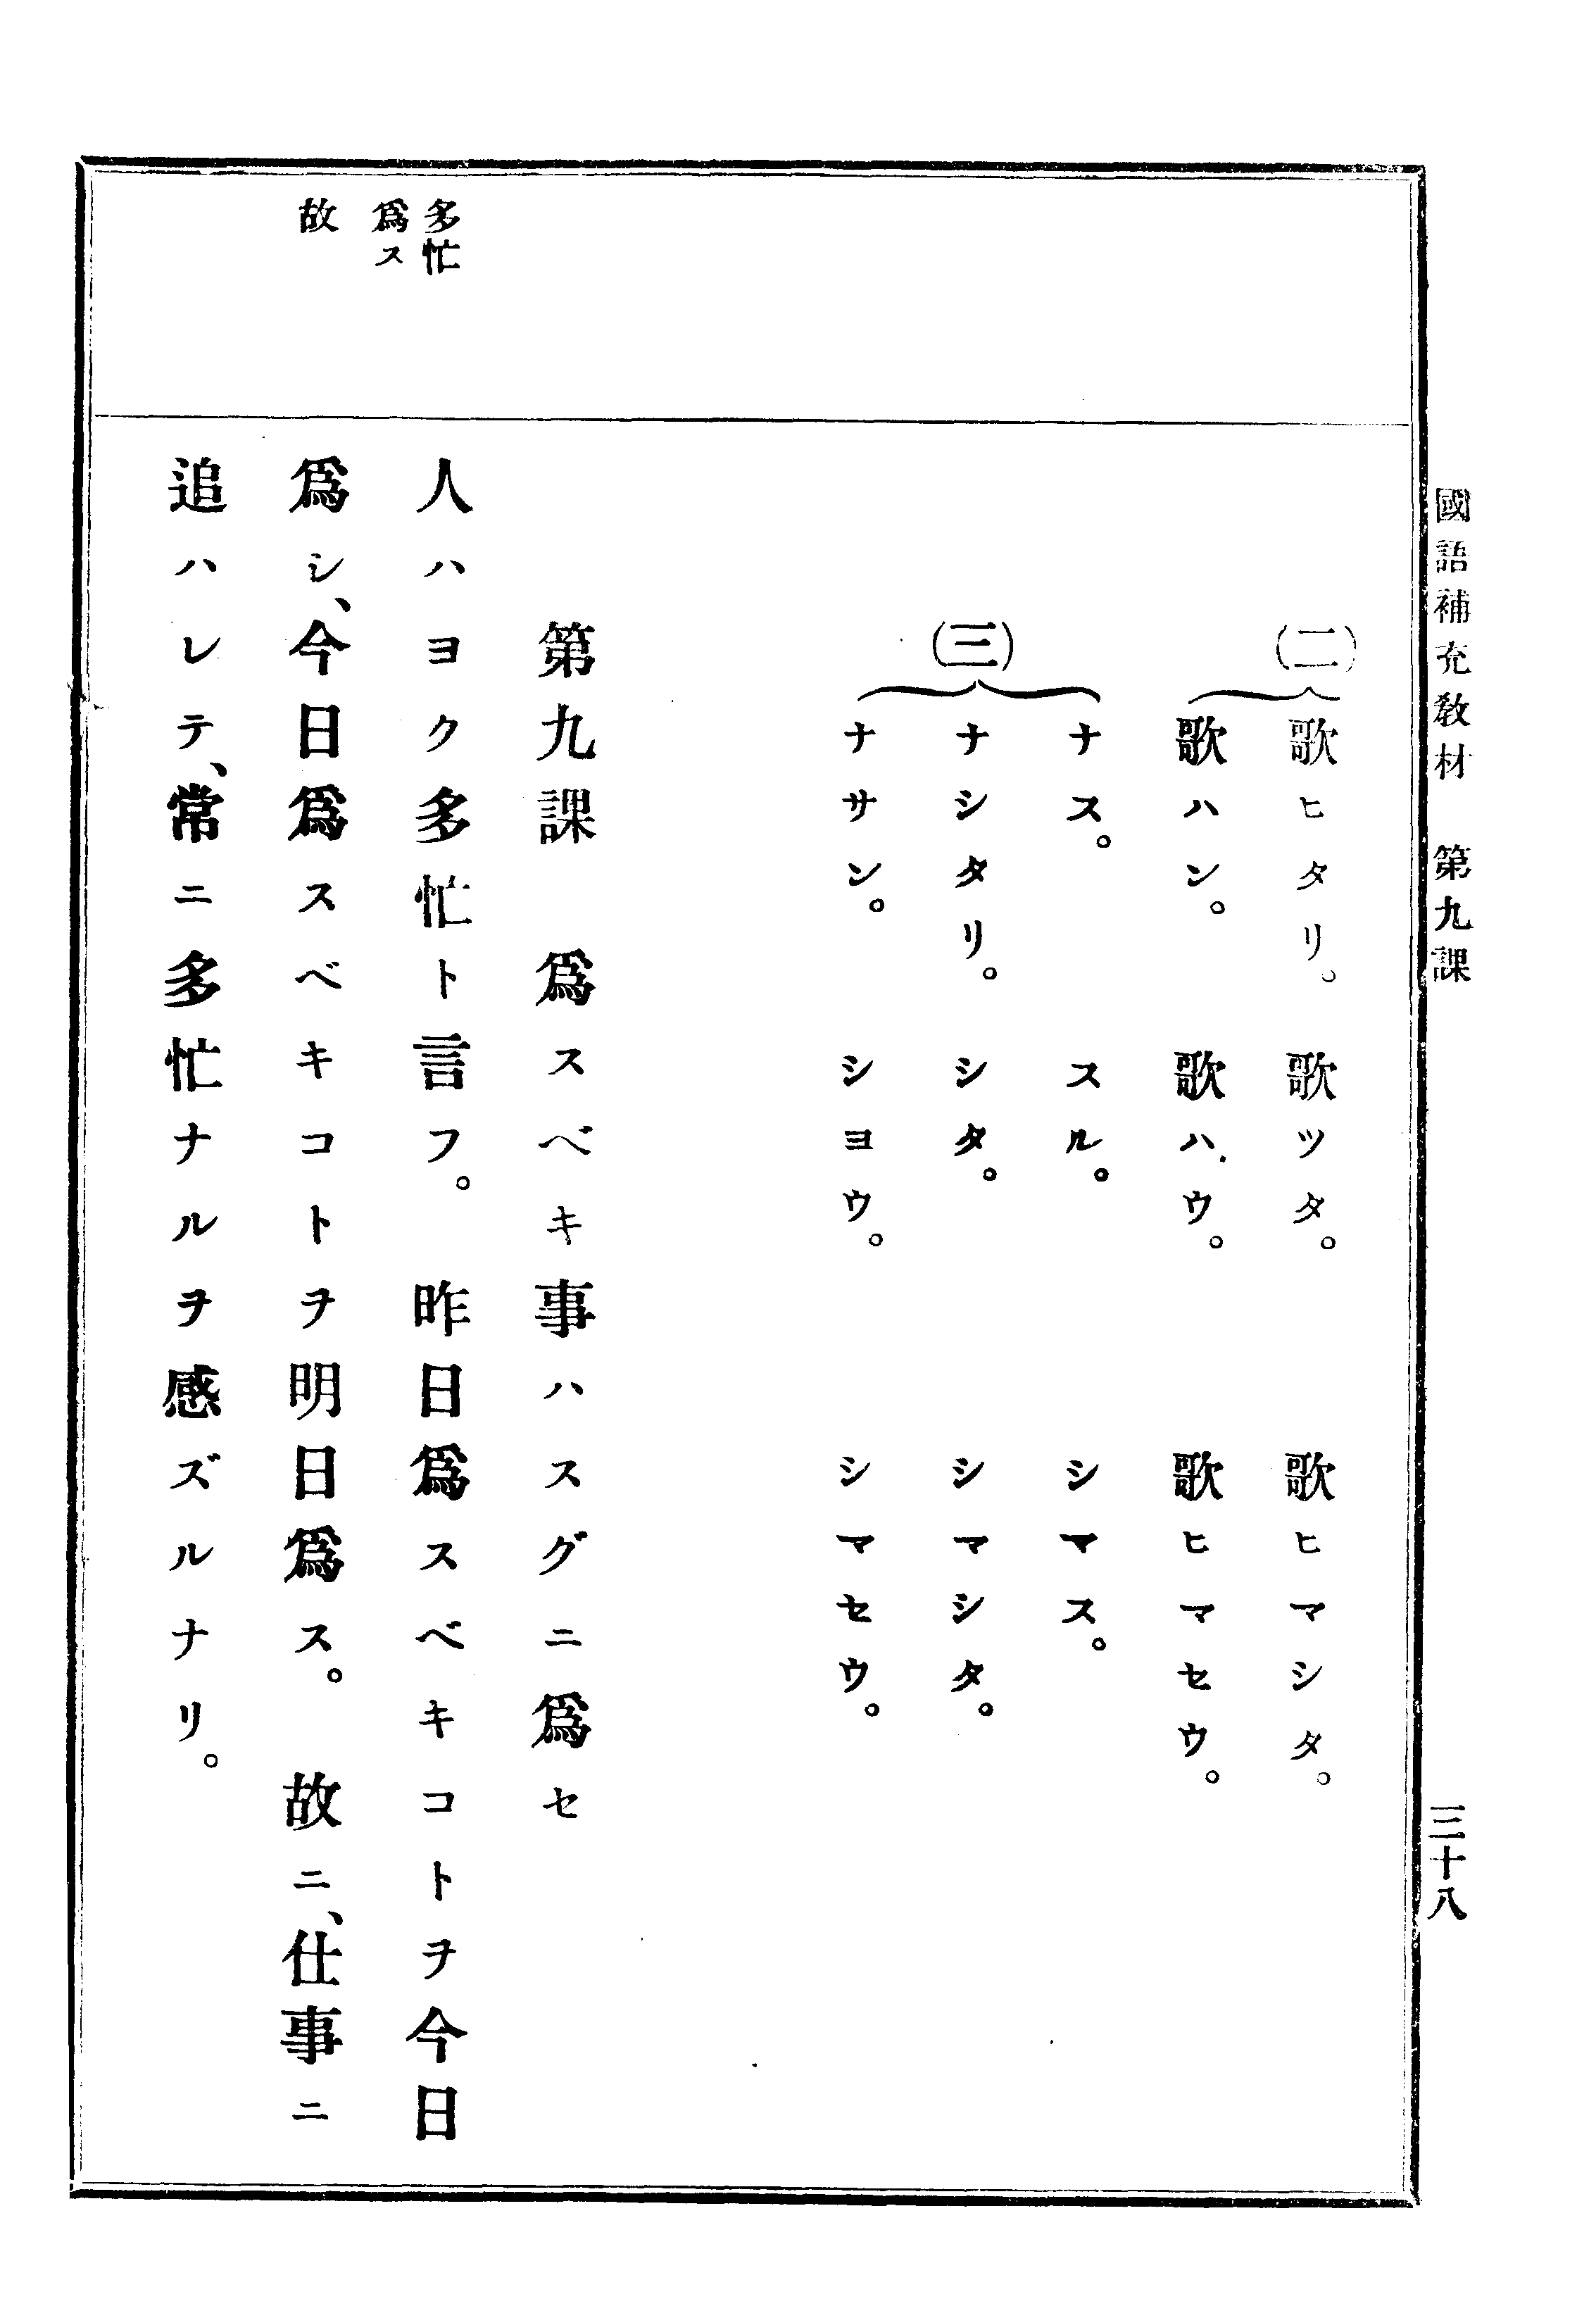 國語補充敎材　第九課　三十八
(二)
歌ヒタリ。　歌ツタ。　歌ヒマシタ。
歌ハン。　歌ハウ。　歌ヒマセウ。
(三)
ナス。　スル。　シマス。
ナシタリ。　シタ。　シマシタ。
ナサン。　シヨウ。　シマセウ。
第九課　爲スベキ事ハスグニ爲セ
多忙
爲ス
故
人ハヨク多忙ト言フ。昨日爲スベキコトヲ今日
爲シ、今日爲スベキコトヲ明日爲ス。故ニ、仕事ニ
追ハレテ、常ニ多忙ナルヲ感ズルナリ。